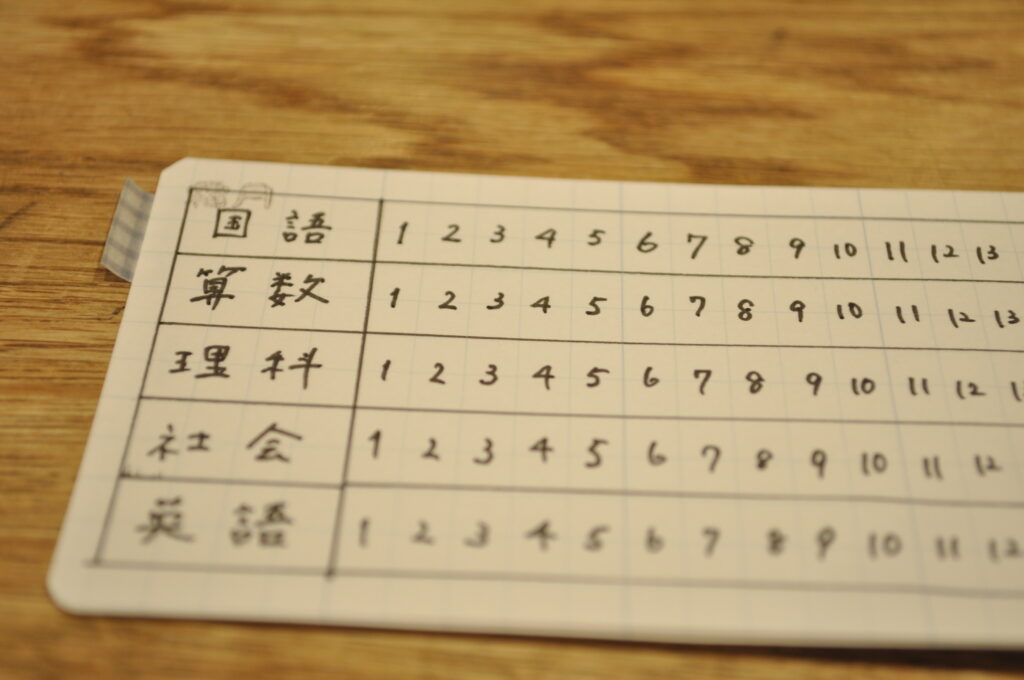 国語 1 2 3 4 5 6 7 8 9 10 11 12 13
算数 1 2 3 4 5 6 7 8 9 10 11 12 13
理科 1 2 3 4 5 6 7 8 9 10 11 12
社会 1 2 3 4 5 6 7 8 9 10 11 12
英語 1 2 3 4 5 6 7 8 9 10 11 12